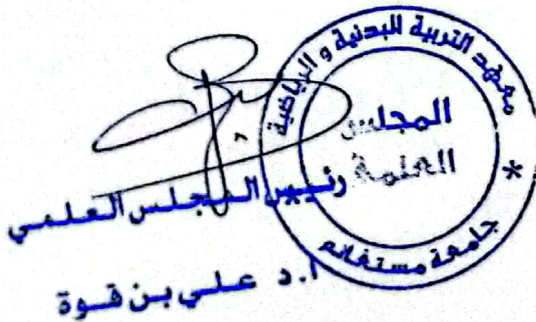 معهد التربية البدنية و الرياضية
المجلس
العلمي
جامعة مستغانم
*
رئيس المجلس العلمي
أ.د علي بن قوة